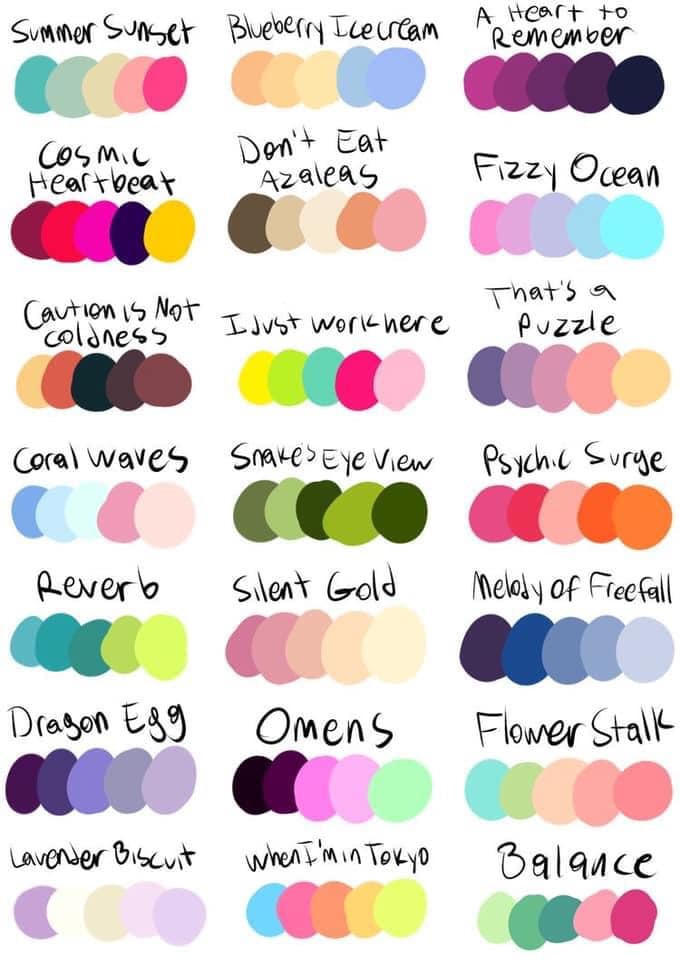 Summer Sunset
Blueberry Icecream
A Heart to
Remember
Cosmic
Heartbeat
Don't Eat
Azaleas
Fizzy Ocean
Caution is Not
coldness
I Just work here
That's a
Puzzle
Coral waves
Snake's Eye View
Psychic Surge
Reverb
Silent Gold
Melody of Freefall
Dragon Egg
Omens
Flower Stalk
Lavender Biscuit
when I'm in Tokyo
Balance